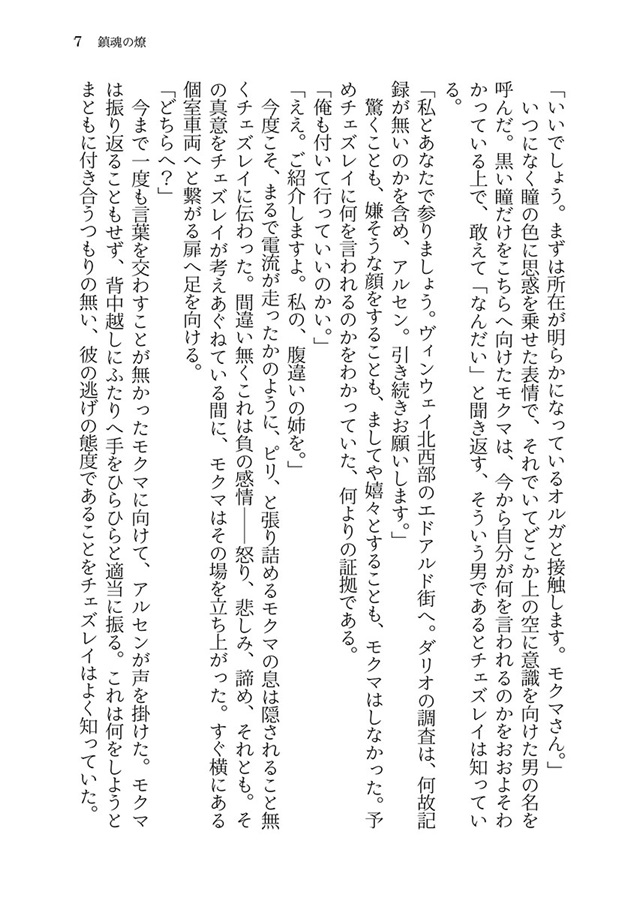 7 鎮魂の燎
「いいでしょう。まずは所在が明らかになっているオルガと接触します。モクマさん。」
いつになく瞳の色に思惑を乗せた表情で、それでいてどこか上の空に意識を向けた男の名を
呼んだ。黒い瞳だけをこちらへ向けたモクマは、今から自分が何を言われるのかをおおよそわ
かっている上で、敢えて「なんだい」と聞き返す、そういう男であるとチェズレイは知ってい
る。
「私とあなたで参りましょう。ヴィンウェイ北西部のエドアルド街へ。ダリオの調査は、何故記
録が無いのかを含め、アルセン。引き続きお願いします。」
驚くことも、嫌そうな顔をすることも、ましてや嬉々とすることも、モクマはしなかった。予
めチェズレイに何を言われるのかをわかっていた、何よりの証拠である。
「俺も付いて行っていいのかい。」
「ええ。ご紹介しますよ。私の、腹違いの姉を。」
今度こそ、まるで電流が走ったかのように、ピリ、と張り詰めるモクマの息は隠されること無
くチェズレイに伝わった。間違い無くこれは負の感情――怒り、悲しみ、諦め、それとも。そ
の真意をチェズレイが考えあぐねている間に、モクマはその場を立ち上がった。すぐ横にある
個室車両へと繋がる扉へ足を向ける。
「どちらへ？」
今まで一度も言葉を交わすことが無かったモクマに向けて、アルセンが声を掛けた。モクマ
は振り返ることもせず、背中越しにふたりへ手をひらひらと適当に振る。これは何をしようと
まともに付き合うつもりの無い、彼の逃げの態度であることをチェズレイはよく知っていた。